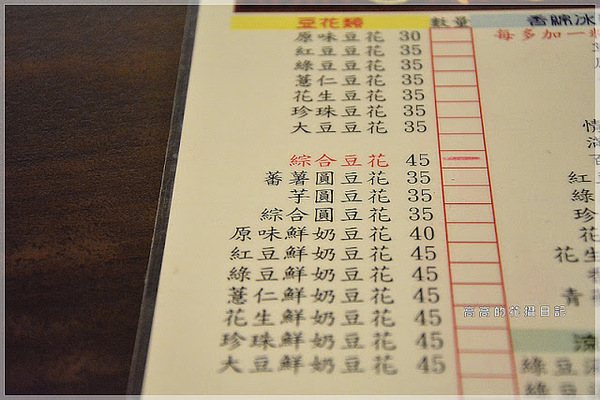 豆花類 數量
原味豆花 30
紅豆豆花 35
綠豆豆花 35
薏仁豆花 35
花生豆花 35
珍珠豆花 35
大豆豆花 35
綜合豆花 45
蕃薯圓豆花 35
芋圓豆花 35
綜合圓豆花 35
原味鮮奶豆花 40
紅豆鮮奶豆花 45
綠豆鮮奶豆花 45
薏仁鮮奶豆花 45
花生鮮奶豆花 45
珍珠鮮奶豆花 45
大豆鮮奶豆花 45
香綿冰
每多加一
紅
綠
珍
花
花生
青
綠豆
綠豆
窩窩的花猫日記